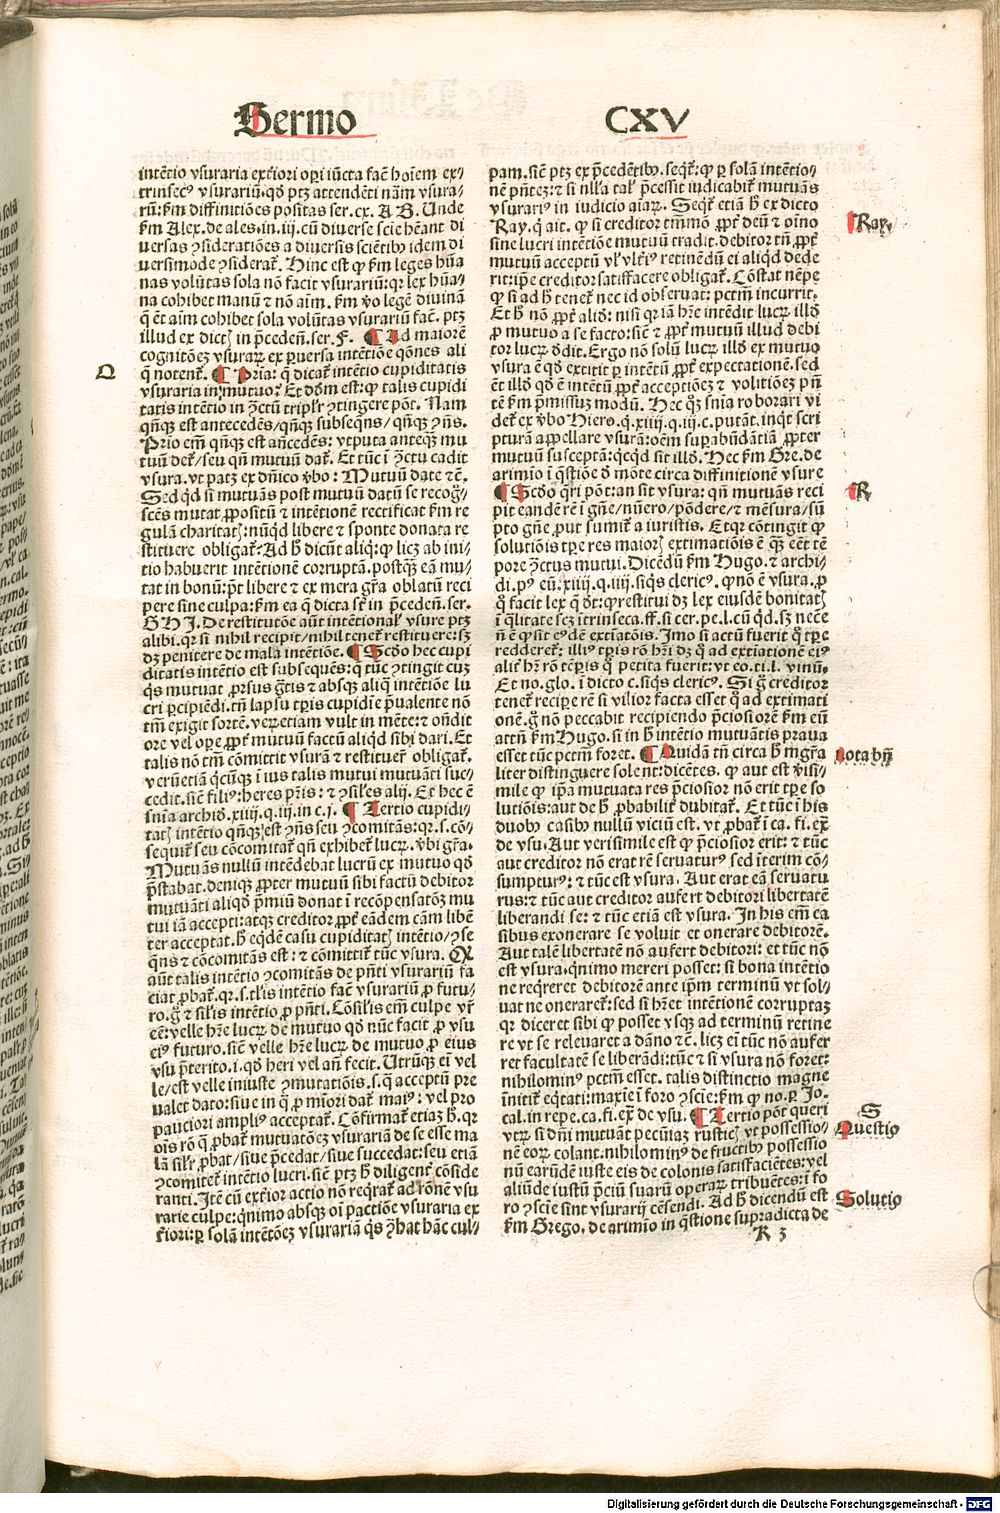 Sermo CXV
intẽtio vsuraria exteriori operi iũcta facit hoĩem ex-
trinsecꝰ vsurariũ. qd̃ ptz attendẽti nãm vsura-
rũ: ẜm diffinitiões positas ser. cx. A B. Unde
ẜm Alex. de ales. in. iij. cũ diuerse scie hẽant di
uersas ꝯsideratiões a diuersis sciẽtibꝰ idem di
uersimode ꝯsiderat̃. Hinc est ꝙ ẜm leges hũa
nas volũtas sola nõ facit vsurariũ: qr lex hũa-
na cohibet manũ ⁊ nõ aĩm. ẜm vo legẽ diuinã
q̃ ẽt aĩm cohibet sola volũtas vsurariũ fac̃. ptz
illud ex dictꝭ in p̃ceden̄. ser. F. ¶ Ad maiorẽ
cognitõeꝫ vsuraꝝ ex ꝑuersa intẽtiõe qõnes ali
q̃ notent̃. ¶ Pria: q̃ dicat̃ intẽtio cupiditatis
Q
vsuraria in mutuo? Et dõm est: ꝙ talis cupidi
tatis intẽtio in ꝯctũ tripl̃r ꝯtingere põt. Nam
qñqꝫ est antecedẽs/ qñqꝫ subseqñs/ qñqꝫ ꝯñs.
Prio em̃ qñqꝫ est añcedẽs: vtputa anteqꝫ mu
tuũ det̃/ seu qñ mutuũ dat̃. Et tũc ĩ ꝯctu cadit
vsura. vt patꝫ ex dñico v̾bo: Mutuũ date ⁊c̃.
Sed qd̃ si mutuãs post mutuũ datũ se recog̃-
scẽs mutat ꝓpositũ ⁊ intẽtionẽ rectificat ẜm re
gulã charitatꝭ: nũqd̃ libere ⁊ sponte donata re
stituere obligat̃? Ad h̃ dicũt aliq̃: ꝙ licꝫ ab ini-
tio habuerit intẽtionẽ corruptã. postqꝫ eã mu-
tat in bonũ: põt libere ⁊ ex mera gr̃a oblatũ reci
pere sine culpa: ẜm ea q̃ dicta sũt in p̃ceden̄. ser.
G H I. De restitutõe aũt intẽtional̃ vsure ptꝫ
alibi. qr si nihil recipit/ nihil tenet̃ restituere: sꝫ
dꝫ penitere de mala intẽtiõe. ¶ Scd̃o hec cupi
ditatis intẽtio est subsequẽs: q̃ tũc ꝯtingit cuꝫ
q̃s mutuat ꝓrsus gr̃tis ⁊ absqꝫ aliq̃ intẽtiõe lu
cri ꝑcipiẽdi. tñ lapsu tꝑis cupidiẽ p̃ualente nõ
tm̃ exigit sortẽ. veꝝetiam vult in mẽte: ⁊ oñdit
ore vel oꝑe ꝓpt̃ mutuũ factũ aliqd̃ sibi dari. Et
talis nõ tm̃ cõmittit vsurã ⁊ restituer̃ obligat̃.
veruetiã q̃cũqꝫ ĩ ius talis mutui mutuãti suc-
cedit. sic̃ filiꝰ: heres p̃ris: ⁊ ꝯsil̃es alij. Et hec ẽ
snĩa archid̃. xiiij. q. iij. in c. j. ¶ Tertio cupidi-
tatꝭ intẽtio qñqꝫ est ꝯñs seu ꝯcomitãs: qr. s. cõ-
sequit̃ seu cõcomitat̃ qñ exhibet̃ lucꝝ. v̾bi gr̃a.
Mutuãs nullũ intẽdebat lucrũ ex mutuo qd̃
p̃stabat. deniqꝫ ꝓpter mutuũ sibi factũ debitor
mutuãti aliqd̃ p̃miũ donat ĩ recõpensatõꝫ mu
tui iã accepti: atqꝫ creditor ꝓpt̃ eãdem cãm libẽ
ter acceptat. h̃ eqd̃ẽ casu cupiditatꝭ intẽtio/ ꝯse
q̃ns ⁊ cõcomitãs est: ⁊ cõmittit̃ tũc vsura. Qꝙ
aũt talis intẽtio ꝯcomitãs de pñti vsurariũ fa
ciat ꝓbat̃. qr. s. tl̃is intẽtio fac̃ vsurariũ ꝓ futu-
ro. g̃ ⁊ silis intẽtio ꝓ pñti. Cõsil̃is em̃ culpe vr̃
eẽ: velle hr̃e lucꝝ de mutuo qd̃ nũc facit ꝓ vsu
eiꝰ futuro. sic̃ velle hr̃e lucꝝ de mutuo ꝓ eius
vsu p̃terito. i. qd̃ heri vel añ fecit. Utrũqꝫ ei vel
le/ est velle iniuste ꝯmutatiõis. s. q̃ acceptũ pre
ualet dato: siue in q̃ ꝓ mĩori dat̃ maiꝰ: vel pro
pauciori ampliꝰ acceptat̃. Cõfirmat̃ etiaꝫ h̃. qr
oĩs rõ q̃ ꝓbat̃ mutuatõeꝫ vsurariã de se esse ma
lã sil̃r ꝓbat/ siue p̃cedat/ siue succedat: seu etiã
ꝯcomitet̃ intẽtio lucri. sic̃ ptꝫ h̃ diligent̃ cõside
ranti. Itẽ cũ ext̃ior actio nõ reqr̃at̃ ad rõnẽ vsu
rarie culpe: q̃nimo absqꝫ oĩ pactiõe vsuraria ex
t̃iori: ꝑ solã intẽtõeꝫ vsurariã q̃s ꝯ̃hat hãc cul-
pam. sic̃ ptꝫ ex p̃cedẽtibꝰ. seqt̃: ꝙ ꝑ solã intẽtio-
nẽ pñteꝫ: ⁊ si nll̃a tal̃ p̃cessit iudicabit̃ mutuãs
vsurariꝰ in iudicio aĩaꝝ. Seqt̃ etiã h̃ ex dicto
Ray. q̃ ait. ꝙ si creditor tm̃mõ ꝓpt̃ deũ ⁊ oĩno
sine lucri intẽtiõe mutuũ tradit. debitor tñ ꝓpt̃
mutuũ acceptũ vl̾ vlt̃iꝰ retinẽdũ ei aliqd̃ dede
rit: ip̃e creditor satisfacere obligat̃. Cõstat nẽpe
ꝙ si ad h̃ tenet̃ nec id obseruat: pctm̃ incurrit.
Et h̃ nõ ꝓpt̃ aliõ: nisi qr iã hr̃e intẽdit lucꝝ illd̃
ꝓ mutuo a se facto: sic̃ ⁊ ꝓpt̃ mutuũ illud debi
tor lucꝝ d̃dit. Ergo nõ solũ lucꝝ illd̃ ex mutuo
vsura ẽ qd̃ extitit ꝑ intẽtũ ꝓpt̃ expectationẽ. sed
ẽt illd̃ qd̃ ẽ intẽtũ ꝓpt̃ acceptiõeꝫ ⁊ volitiõeꝫ pñ
tẽ ẜm p̃missuꝫ modũ. Hec q̃ꝫ snĩa roborari vi
det̃ ex v̾bo Hiero. q. xiiij. q. iij. c. putãt. inqt̃ scri
pturã appellare vsurã: oẽm supabũdãtiã ꝓpter
mutuũ susceptã: q̃cqd̃ sit illd̃. Hec ẜm Gre. de
arimio ĩ q̃stiõe d̃ mõte circa diffinitionẽ vsure
¶ Scd̃o q̃ri põt: an sit vsura: qñ mutuãs reci
pit eandẽ rẽ ĩ gñe/ nũero/ põdere/ ⁊ mẽsura/ sũ
pto gñe ꝓut sumit̃ a iuristis. Etqꝫ cõtingit ꝙ
solutiõis tꝑe res maioꝝ extimatiõis ẽ qꝫ eẽt tẽ
pore ꝯctus mutui. Dicẽdũ ẜm Hugo. ⁊ archi-
di. pꝰ eũ. xiiij. q. iiij. siq̃s clericꝰ. ꝙ nõ ẽ vsura. ꝓ
q̃ facit lex q̃ d̃r: ꝙ restitui dꝫ lex eiusdẽ bonitatꝭ
ĩ q̃litate scꝫ ĩtrinseca. ff. si cer. pe. l. cũ q̃d. sꝫ necẽ
ñ ẽ ꝙ sit eꝰdẽ extĩatõis. Imo si actũ fuerit q̃ tꝑe
redderet̃: illiꝰ tꝑis rõ hr̃i dꝫ q̃ ad extĩationẽ eiꝰ
alit̃ hr̃ rõ tẽꝑis q̃ petita fuerit: vt eo. ti. l. vinũ.
Et no. glo. ĩ dicto c. siq̃s clericꝰ. Si g̃ creditor
tenet̃ reciꝑe rẽ si vilior facta esset q̃ ad extimati
onẽ. g̃ nõ peccabit recipiendo p̃ciosiorẽ ẜm eũ
attñ ẜm Hugo. si in h̃ intẽtio mutuãtis praua
esset tũc pctm̃ foret. ¶ Quidã tñ circa h̃ mg̃ra
liter distinguere solent: dicẽtes. ꝙ aut est v̾isi-
mile ꝙ ip̃a mutuata res p̃ciosior nõ erit tꝑe so
lutiõis: aut de h̃ ꝓbabilit̃ dubitat̃. Et tũc ĩ his
duobꝰ casibꝰ nullũ viciũ est. vt ꝓbat̃ ĩ ca. fi. ex̃
de vsu. Aut verisimile est ꝙ p̃ciosior erit: ⁊ tũc
aut creditor nõ erat rẽ seruaturꝰ sed ĩterim cõ-
sumpturꝰ: ⁊ tũc est vsura. Aut erat eã seruatu
rus: ⁊ tũc aut creditor aufert debitori libertatẽ
liberandi se: ⁊ tũc etiã est vsura. In his em̃ ca
sibus exonerare se voluit et onerare debitorẽ.
Aut talẽ libertatẽ nõ aufert debitori: et tũc nõ
est vsura. q̃nimo mereri posset: si bona intẽtio
ne reqr̃eret debitorẽ ante ip̃m terminũ vt sol-
uat ne oneraret̃: sed si hr̃et intẽtionẽ corruptaꝫ
qr diceret sibi ꝙ posset vsqꝫ ad terminũ retine
re vt se releuaret a dãno ⁊c̃. licꝫ ei tũc nõ aufer
ret facultatẽ se liberãdi: tũc ⁊ si vsura nõ foret:
nihilominꝰ pctm̃ esset. talis distinctio magne
ĩnitit̃ eq̃tati: maxie ĩ foro ꝯscie: ẜm ꝙ no. ꝑ Jo.
cal. in repe. ca. fi. ex̃ de vsu. ¶ Tertio põt queri
vtꝝ si dñi mutuãt pecũiaꝫ rusticꝭ vt possessio-
nẽ eoꝝ colant. nihilominꝰ de fructibꝰ possessio
nũ earũdẽ iuste eis de colonis satisfaciẽtes: vel
aliũde iustũ p̃ciũ suarũ operaꝝ tribuẽtes: ĩ fo
ro ꝯscie sint vsurarij cẽsendi. Ad h̃ dicendũ est
ẜm Grego. de arimio in q̃stione supradicta de
Ray.
R
Nota bñ
S
Questio
Solutio
K 3
Digitalisierung gefördert durch die Deutsche Forschungsgemeinschaft - DFG